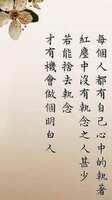 每個人都有自己心中的執著
紅塵中沒有執念之人甚少
若能捨去執念
才有機會做個明白人